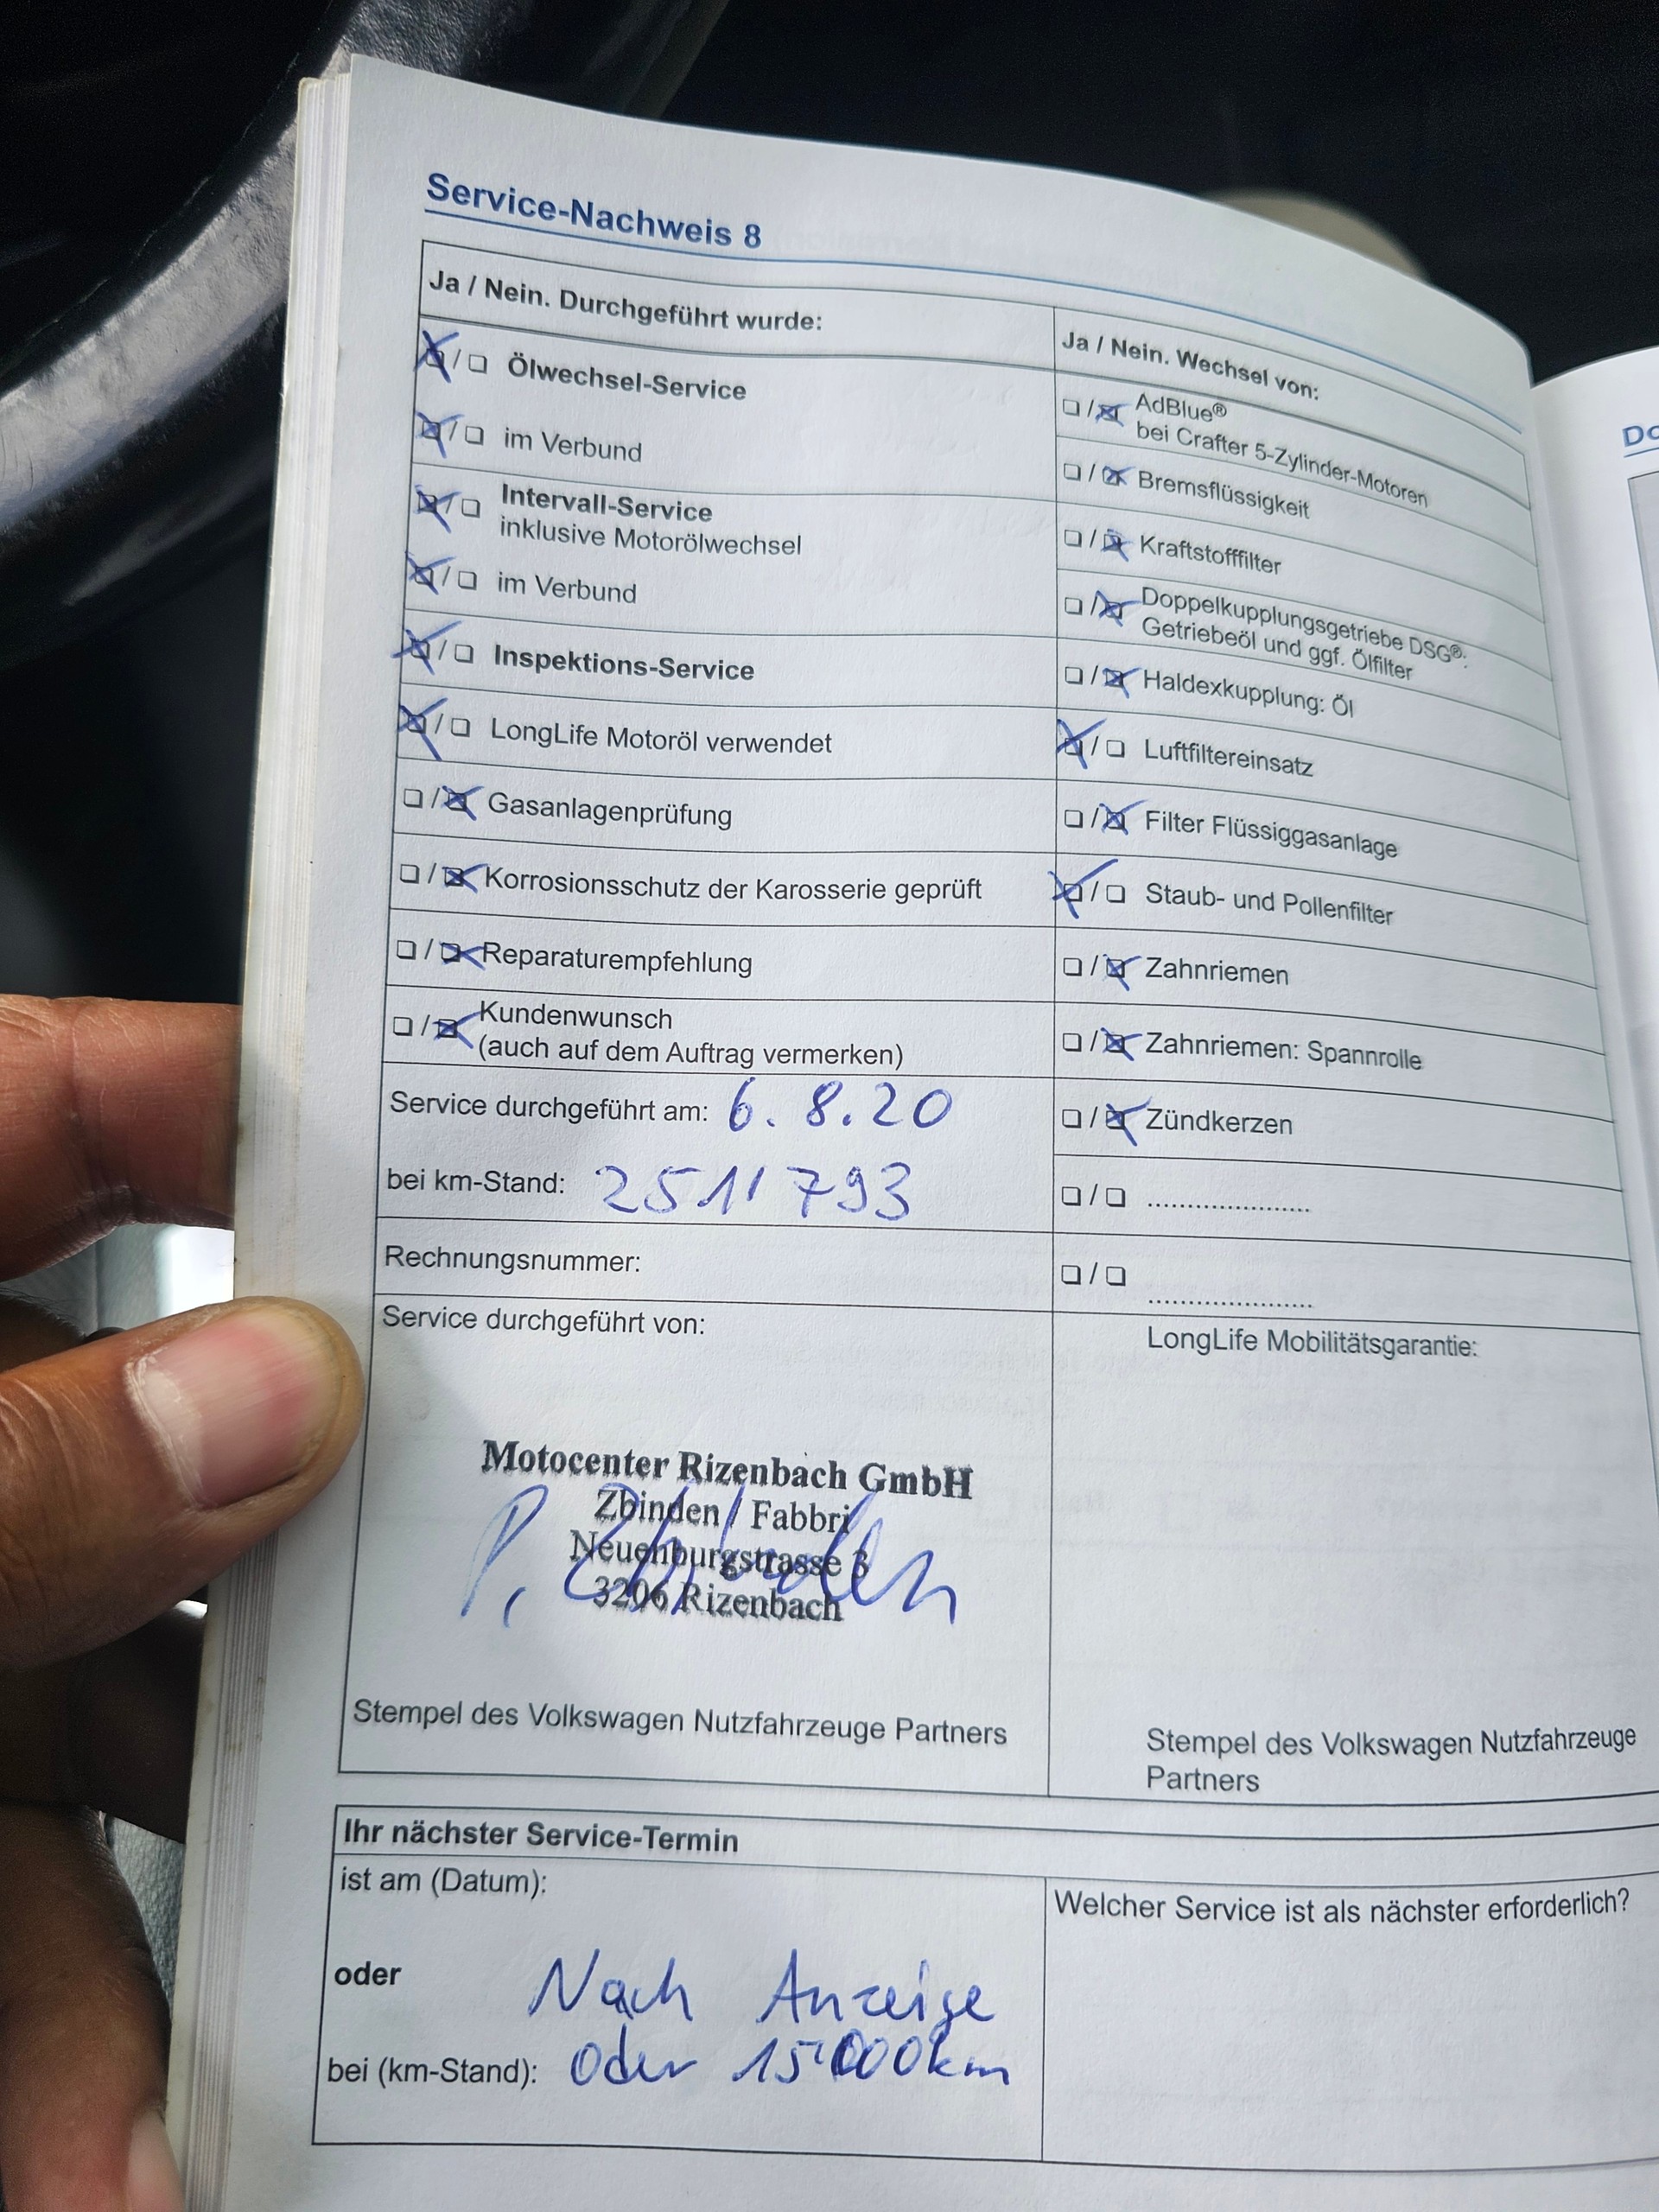 Service-Nachweis 8
Ja / Nein. Durchgeführt wurde:
☒ / ☐ Ölwechsel-Service
☒ / ☐ im Verbund
☒ / ☐ Intervall-Service
inklusive Motorölwechsel
☒ / ☐ im Verbund
☒ / ☐ Inspektions-Service
☒ / ☐ LongLife Motoröl verwendet
☐ / ☒ Gasanlagenprüfung
☐ / ☒ Korrosionsschutz der Karosserie geprüft
☐ / ☒ Reparaturempfehlung
☐ / ☒ Kundenwunsch
(auch auf dem Auftrag vermerken)
Service durchgeführt am: 6. 8. 20
bei km-Stand: 251'793
Rechnungsnummer:
Service durchgeführt von:
Motocenter Rizenbach GmbH
Zbinden / Fabbri
Neuenburgstrasse 3
3206 Rizenbach
P. Zbinden
Stempel des Volkswagen Nutzfahrzeuge Partners
Ja / Nein. Wechsel von:
☐ / ☒ AdBlue®
bei Crafter 5-Zylinder-Motoren
☐ / ☒ Bremsflüssigkeit
☐ / ☒ Kraftstofffilter
☐ / ☒ Doppelkupplungsgetriebe DSG®:
Getriebeöl und ggf. Ölfilter
☐ / ☒ Haldexkupplung: Öl
☒ / ☐ Luftfiltereinsatz
☐ / ☒ Filter Flüssiggasanlage
☒ / ☐ Staub- und Pollenfilter
☐ / ☒ Zahnriemen
☐ / ☒ Zahnriemen: Spannrolle
☐ / ☒ Zündkerzen
☐ / ☐ ......................
☐ / ☐ ......................
LongLife Mobilitätsgarantie:
Stempel des Volkswagen Nutzfahrzeuge
Partners
Ihr nächster Service-Termin
ist am (Datum):
oder Nach Anzeige
bei (km-Stand): oder 15'000km
Welcher Service ist als nächster erforderlich?